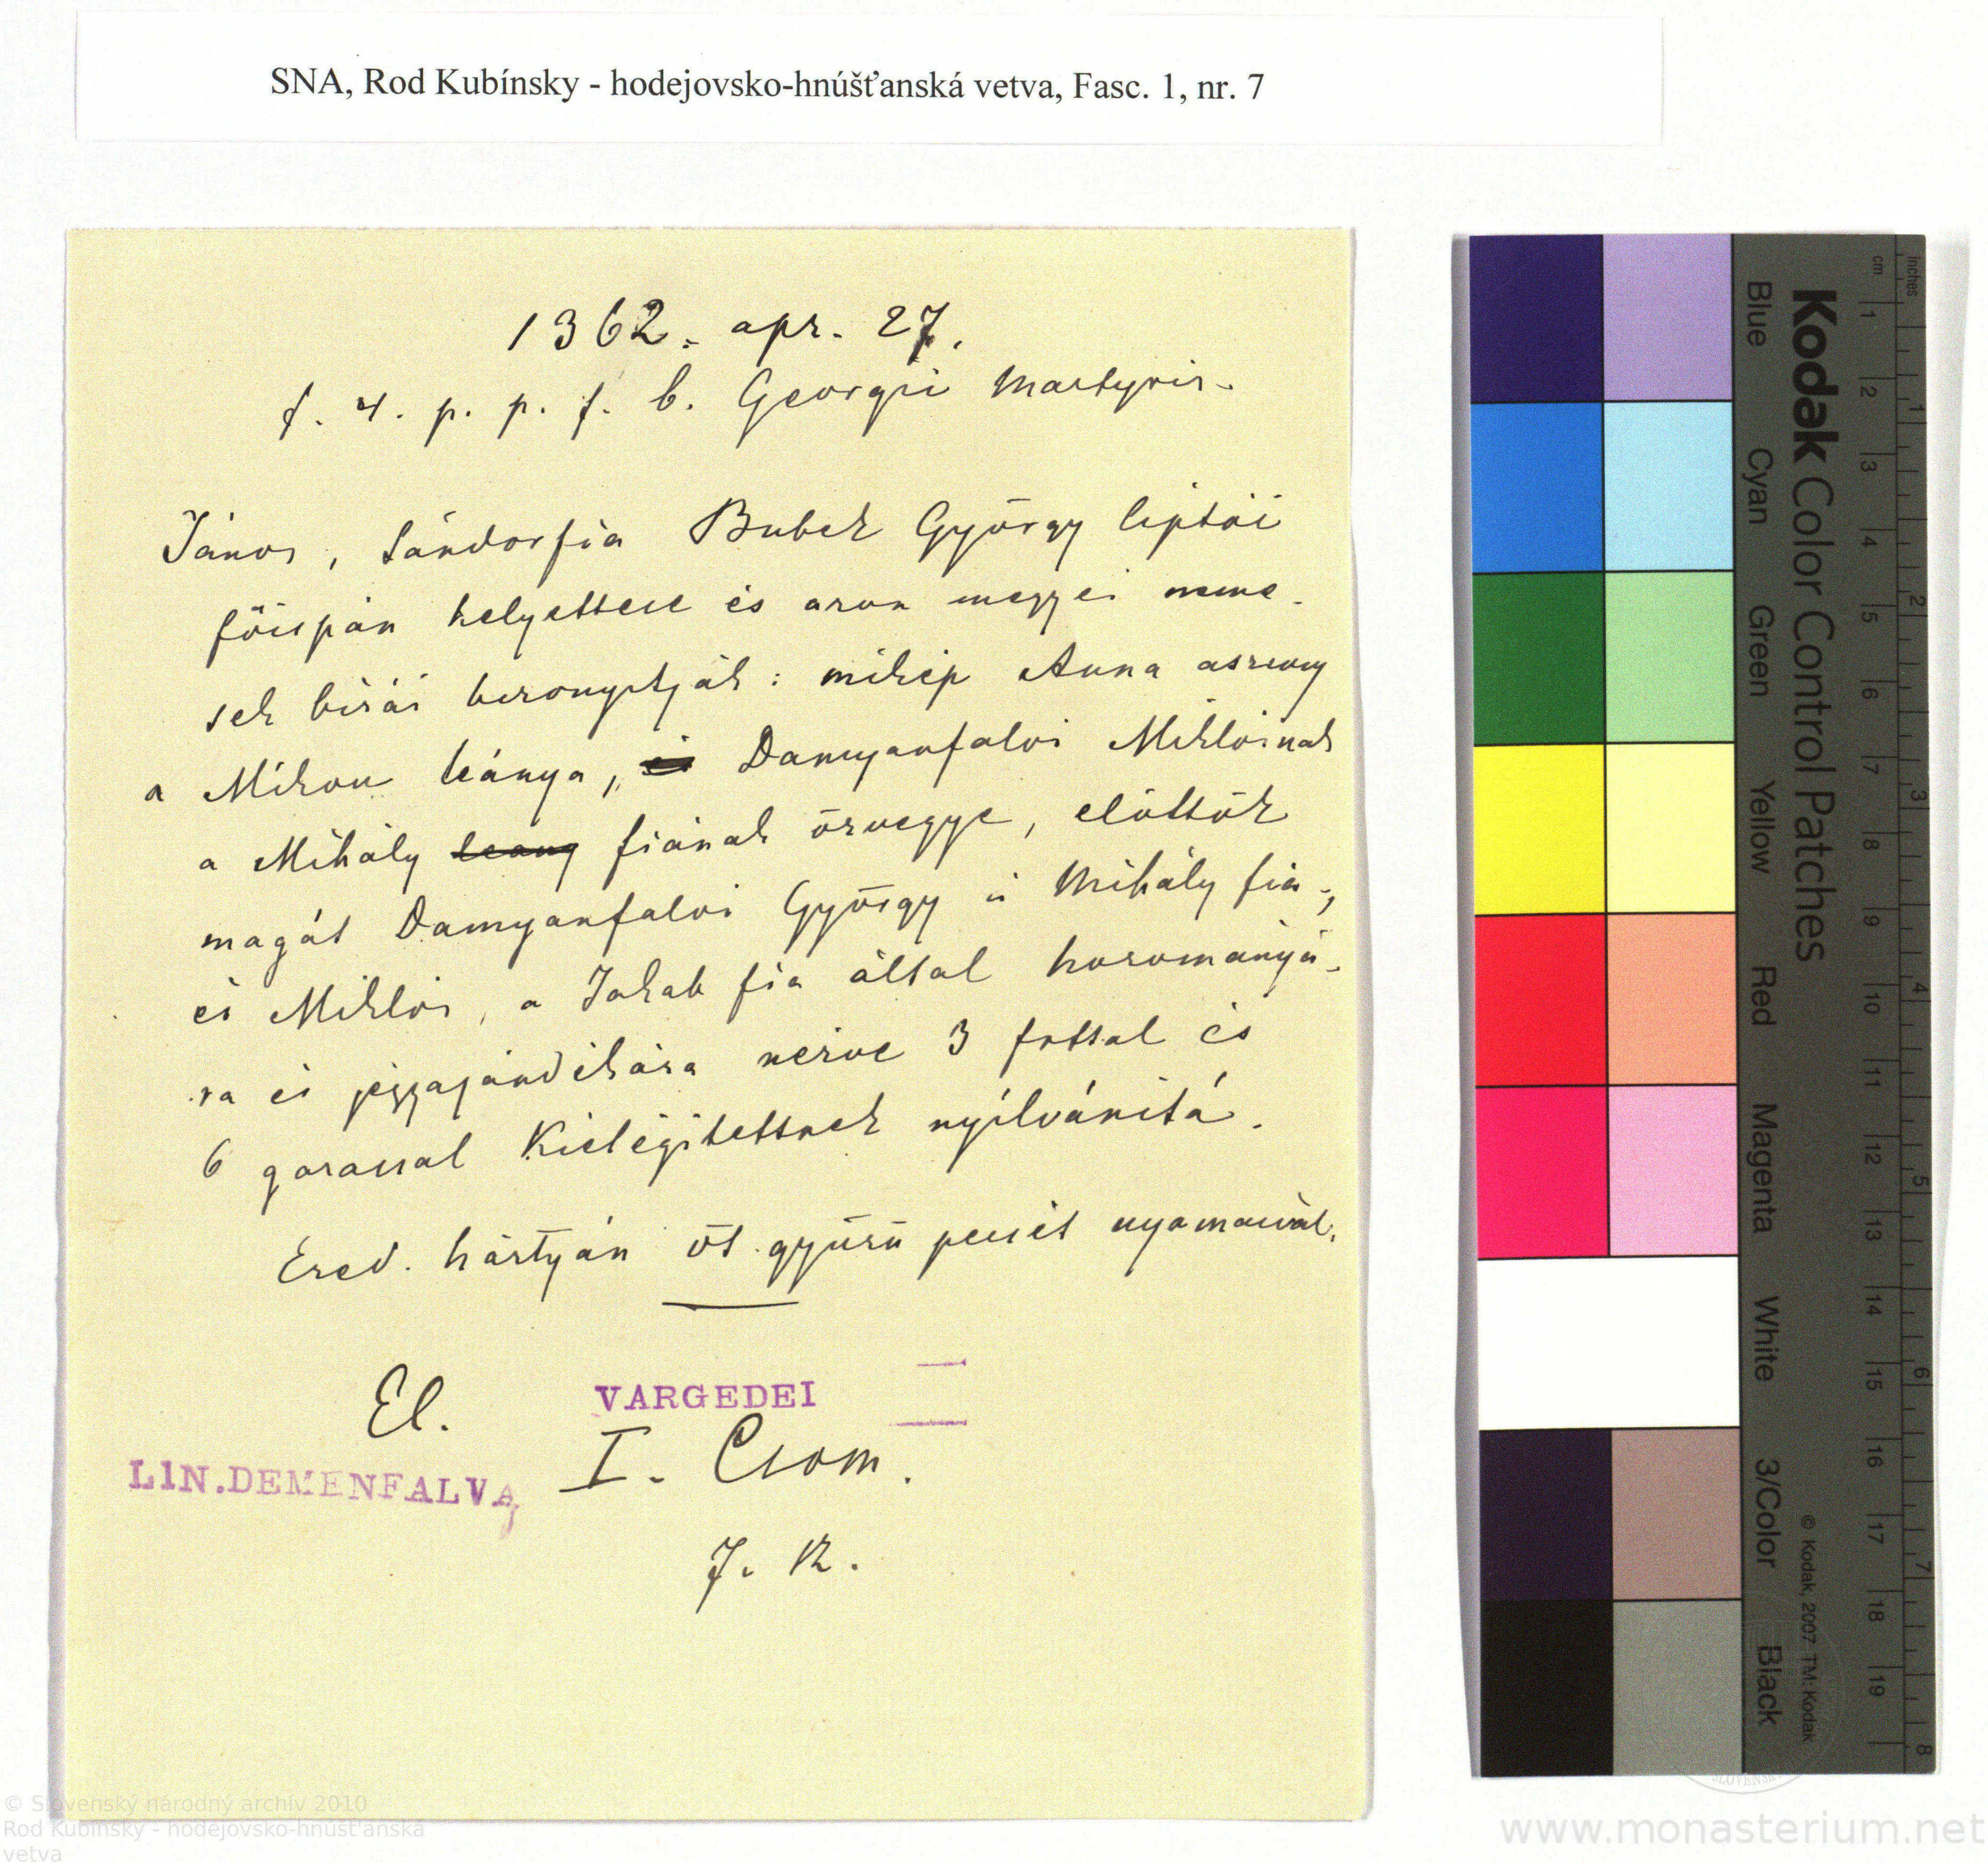 SNA, Rod Kubínsky - hodejovsko-hnúšťanská vetva, Fasc. 1, nr. 7
1362. apr. 27.
f. 4. p. p. f. b. Georgii Martyris.
János, Sándorfia Bubek György liptói
főispán helyettese és azon megyei neme-
sek birái bizonyitják: mikép Anna asszony
a Mikou leánya, Damyanfalvi Miklósnak
a Mihály leany fiának özvegye, előttök
magát Damyanfalvi György a Mihály fia,
és Miklós, a Jakab fia által hozományá-
ra és jegyajándékára nézve 3 fttal és
6 garassal Kielégitettnek nyílvánitá.
Ered. hártyán öt gyűrű pecsét nyomaival.
El.
VARGEDEI
LIN. DEMENFALVA
I. Csom.
7.
Kodak Color Control Patches
Blue Cyan Green Yellow Red Magenta White 3/Color Black
inches 1 2 3 4 5 6 7 8
cm 1 2 3 4 5 6 7 8 9 10 11 12 13 14 15 16 17 18 19
© Kodak, 2007 TM: Kodak
© Slovenský národný archív 2010
Rod Kubínsky - hodejovsko-hnúšťanská
vetva
www.monasterium.net